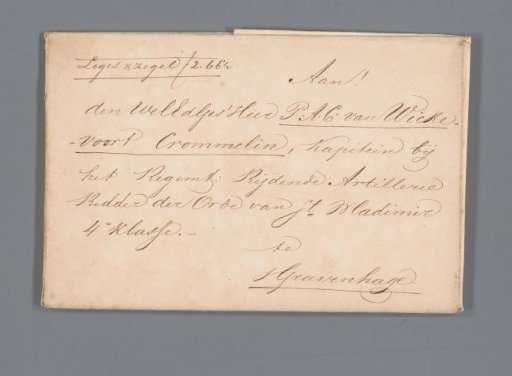 Leges & zegel ƒ2.66½
Aan!
den WelEdGes. Heer P.A.C. van Wicke-
-voort Crommelin, Kapitein bij
het Regemt: Rijdende Artillerie
Ridder der Orde van St Wladimir
4e Klasse. –
te
s Gravenhage